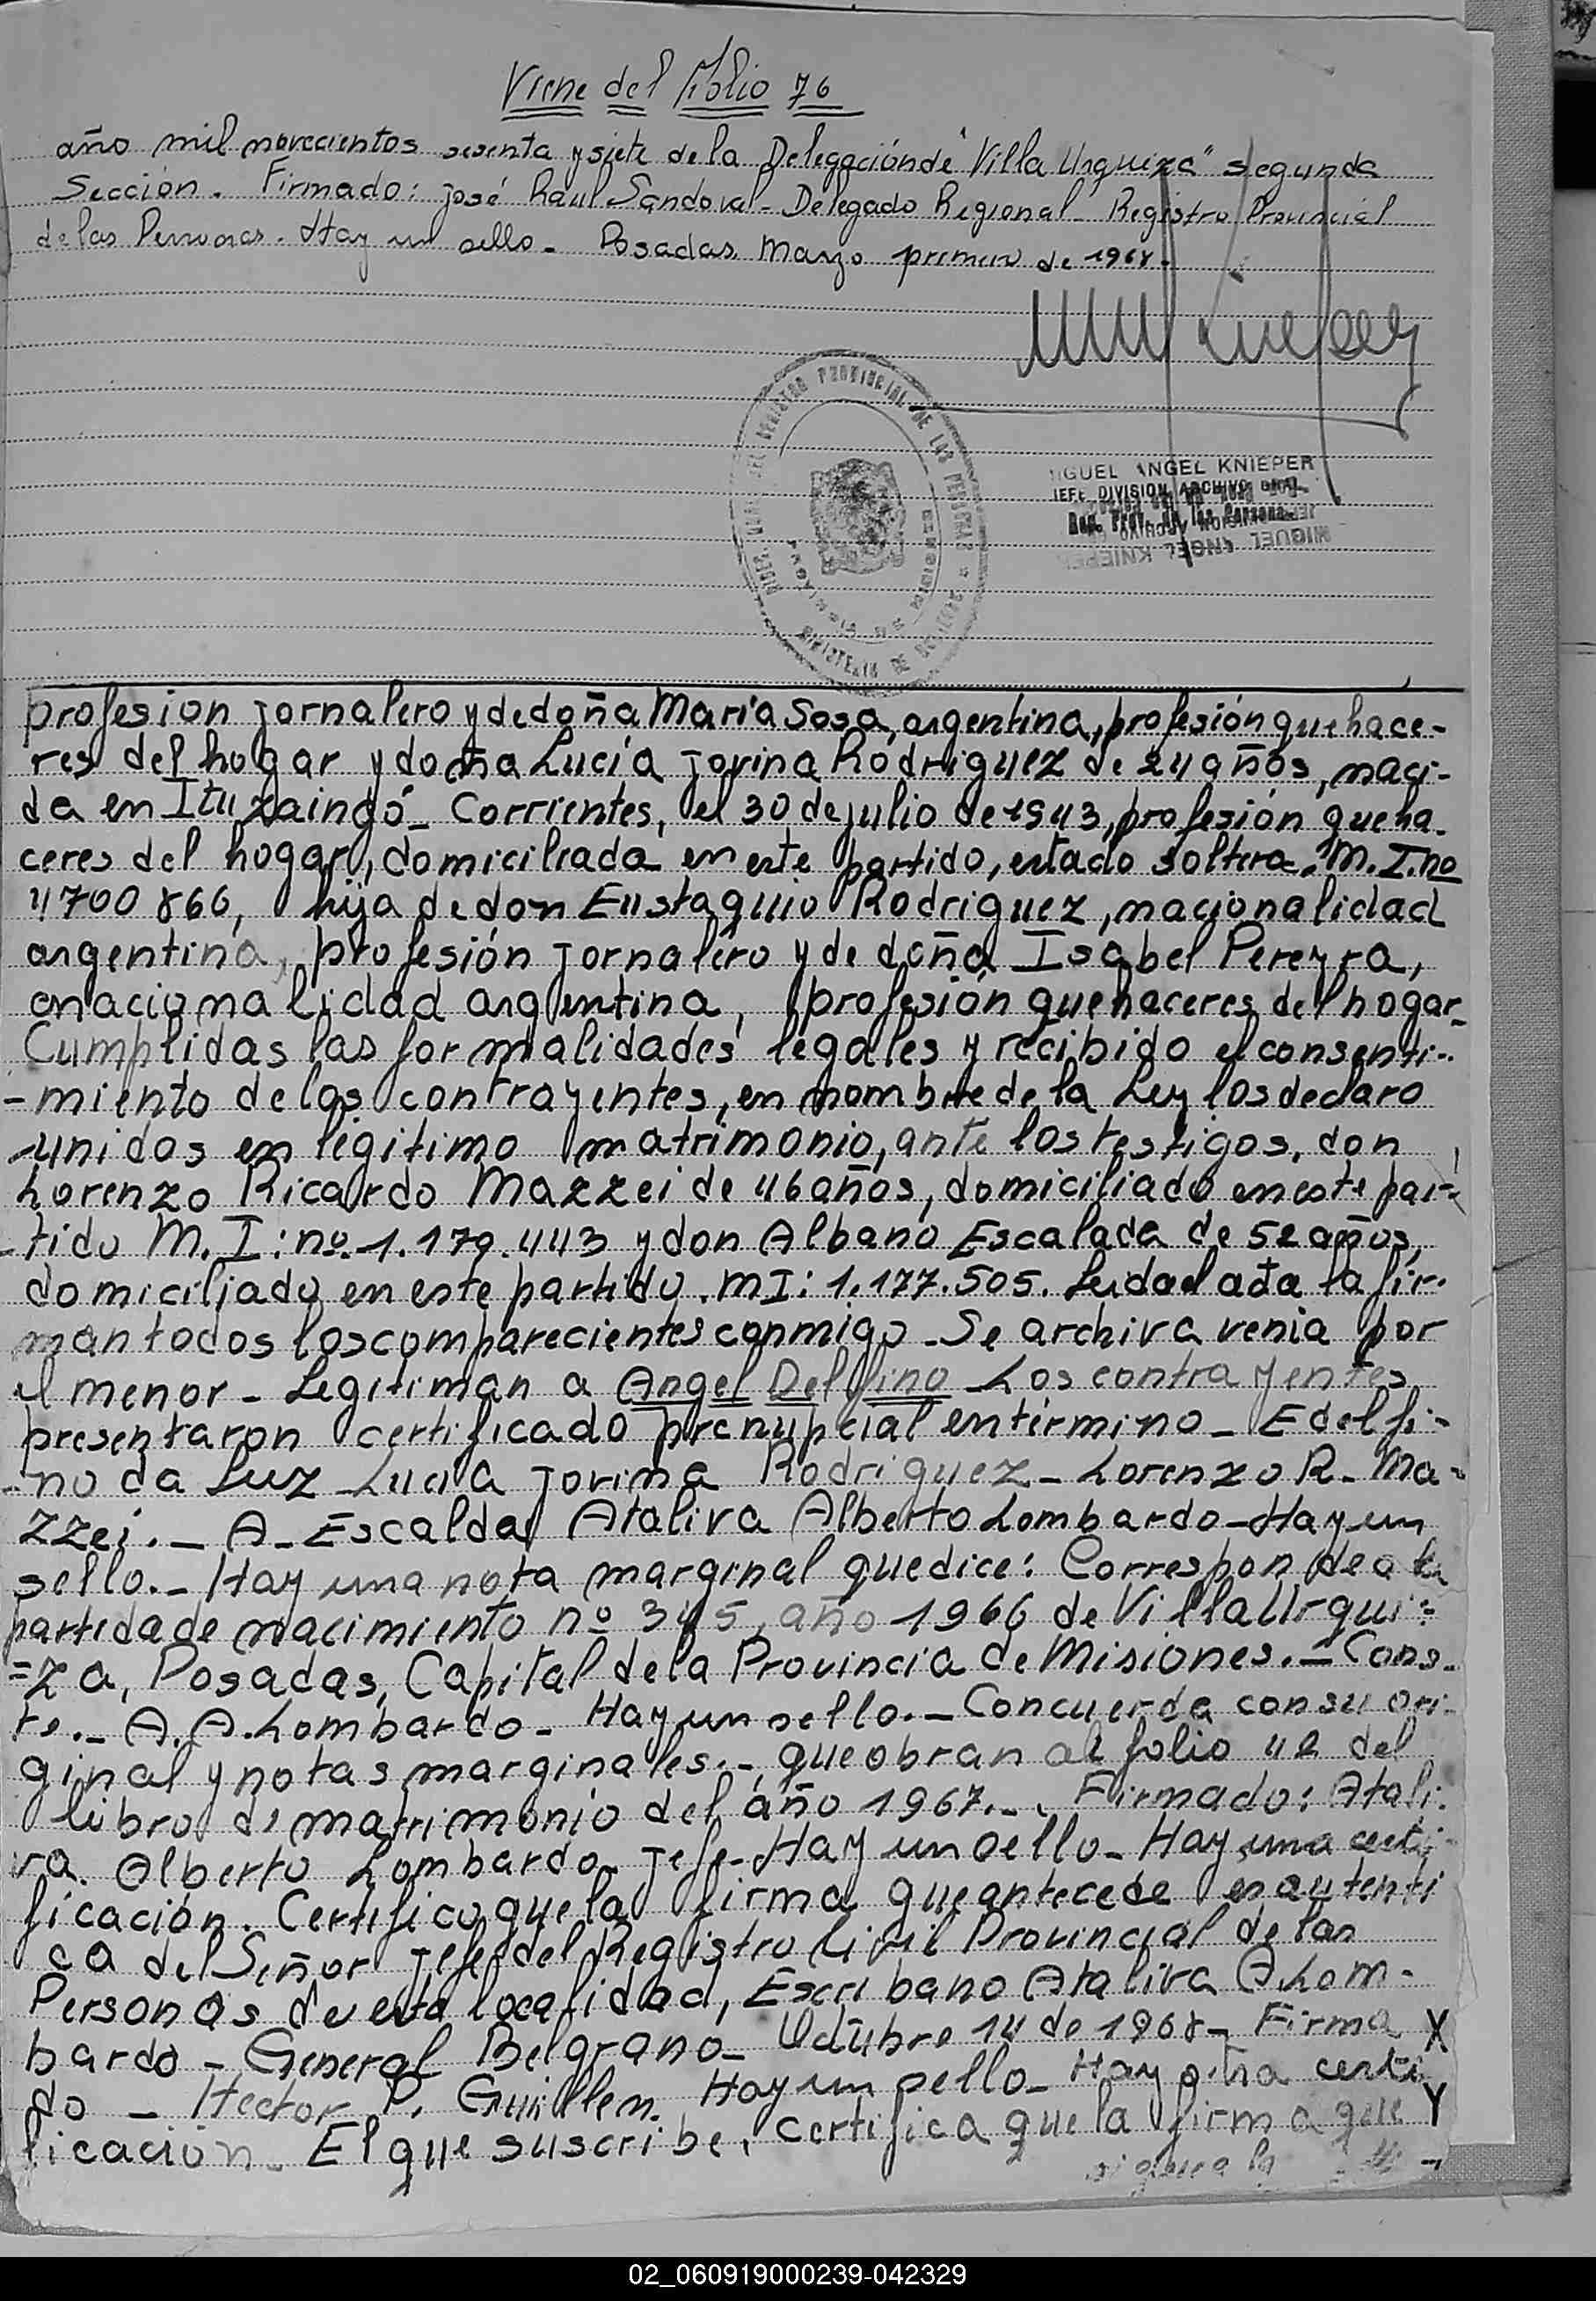 Viene del folio 76
año mil novecientos sesenta y siete de la Delegación de "Villa Urquiza" segunda
Sección. Firmado: José Raul Sandoval - Delegado Regional - Registro Provincial
de las Personas. Hay un sello - Posadas, Marzo primero de 1968.
MIGUEL ANGEL KNIEPER
JEFE DIVISION ARCHIVO GRAL.
Reg. Prov. de las Personas
REGISTRO PROVINCIAL DE LAS PERSONAS
MINISTERIO DE GOBIERNO
MISIONES
profesion jornalero y de doña Maria Sosa, argentina, profesión quehace-
res del hogar y doña Lucía Jovina Rodriguez de 24 años, naci-
da en Ituzaingó - Corrientes, el 30 de julio de 1943, profesión queha-
ceres del hogar, domiciliada en este partido, estado soltera. M. I. no
4700866, hija de don Eustaquio Rodriguez, nacionalidad
argentina, profesión jornalero y de doña Isabel Pereyra,
nacionalidad argentina, profesión quehaceres del hogar-
Cumplidas las formalidades legales y recibido el consenti-
-miento de los contrayentes, en nombre de la Ley los declaro
unidos en légitimo matrimonio, ante los testigos, don
Lorenzo Ricardo Mazzei de 46 años, domiciliado en este par-
-tido M. I: nº. 1.179.443 y don Albano Escalada de 52 años,
domiciliado en este partido. MI: 1.177.505. Leida el acta la fir-
man todos los comparecientes conmigo - Se archiva venia por
el menor - Legitiman a Angel Delfino - Los contrayentes
presentaron certificado prenupcial en término - Edelfi-
-no da Luz Lucia Jovina Rodriguez - Lorenzo R. Ma-
zzei. - A - Escalda Ataliva Alberto Lombardo - Hay un
sello. - Hay una nota marginal que dice: Corresponde a la
partida de nacimiento nº 345, año 1966 de Villa Urqui=
=za, Posadas, Capital de la Provincia de Misiones. - Cons-
te. - A. A. Lombardo - Hay un sello. - Concuerda con su ori-
ginal y notas marginales. - que obran al folio 42 del
libro de matrimonio del año 1967. - Firmado: Atali-
va Alberto Lombardo - Jefe - Hay un sello - Hay una certi-
ficación. Certifico que la firma que antecede es autenti
ca del Señor Jefe del Registro Civil Provincial de las
Personas de esta localidad, Escribano Ataliva A. Lom-
bardo - General Belgrano - Octubre 14 de 1968 - Firma X
do - Hector P. Guillen. Hay un sello - Hay otra certi
ficación. El que suscribe, certifica que la firma que Y
sigue a la
02_060919000239-042329